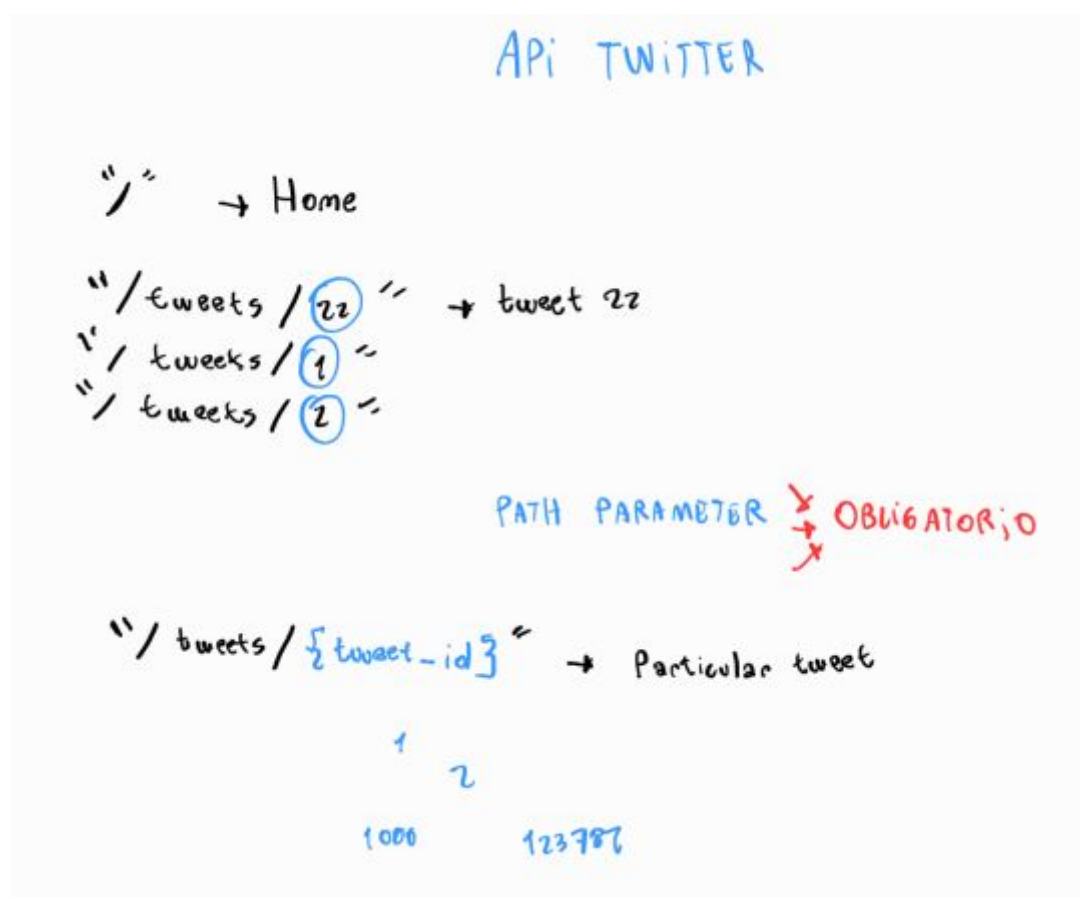 APi TWiTTER
"/" → Home
"/tweets/22" → tweet 22
"/tweeks/1"
"/tweets/2"
PATH PARAMETER → OBLIGATORiO
"/tweets/{tweet_id}" → Particular tweet
1
2
1000